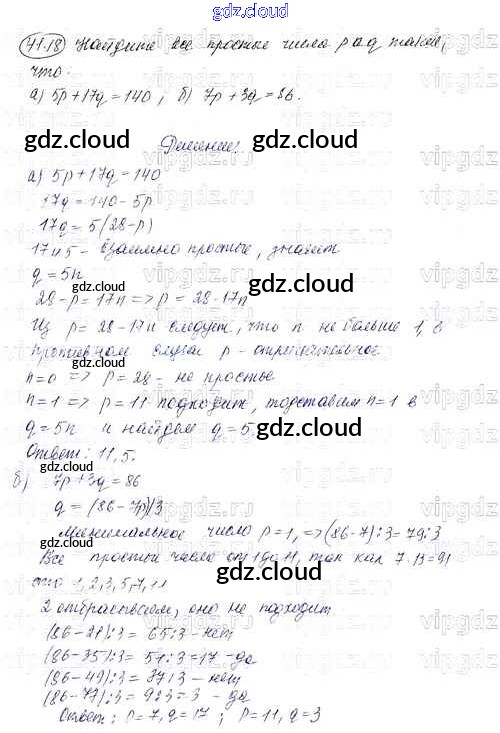 gdz.cloud
41.18 Найдите все простые числа p и q такие,
что:
а) 5p+17q=140; б) 7p+3q=86.
gdz.cloud gdz.cloud
Решение:
а) 5p+17q=140
17q=140-5p
17q=5(28-p)
17 и 5 - взаимно простые, значит
q=5n
gdz.cloud gdz.cloud
28-p=17n => p=28-17n
Из p=28-17n следует, что n не больше 1, в
противном случае p - отрицательное
gdz.cloud
n=0 => p=28 - не простые
n=1 => p=11 подходит, подставим n=1 в
q=5n и найдем q=5
gdz.cloud
Ответ: 11, 5.
б) 7p+3q=86
gdz.cloud
q=(86-7p)/3
Минимальное число p=1, => (86-7):3=79:3
Все простые числа от 1 до 11, так как 7·13=91
gdz.cloud
это 1,2,3,5,7,11
2 отбрасываем, оно не подходит
(86-21):3=65:3-нет
(86-35):3=51:3=17-да
(86-49):3=37:3-нет
gdz.cloud gdz.cloud
(86-77):3=9:3=3-да
Ответ: p=7, q=17; p=11, q=3
gdz.cloud
vipgdz.ru